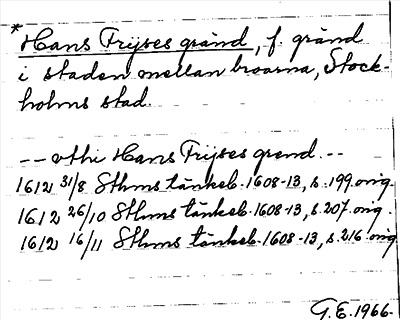 *Hans Frijses gränd, f. gränd
i staden mellan broarna, Stock-
holms stad.
-- vthi Hans Frijses grend. --
1612 31/8 Sthms tänkeb. 1608-13, s. 199. orig.
1612 26/10 Sthms tänkeb. 1608-13, s. 207. orig.
1612 16/11 Sthms tänkeb. 1608-13, s. 216 orig.
G.E. 1966.